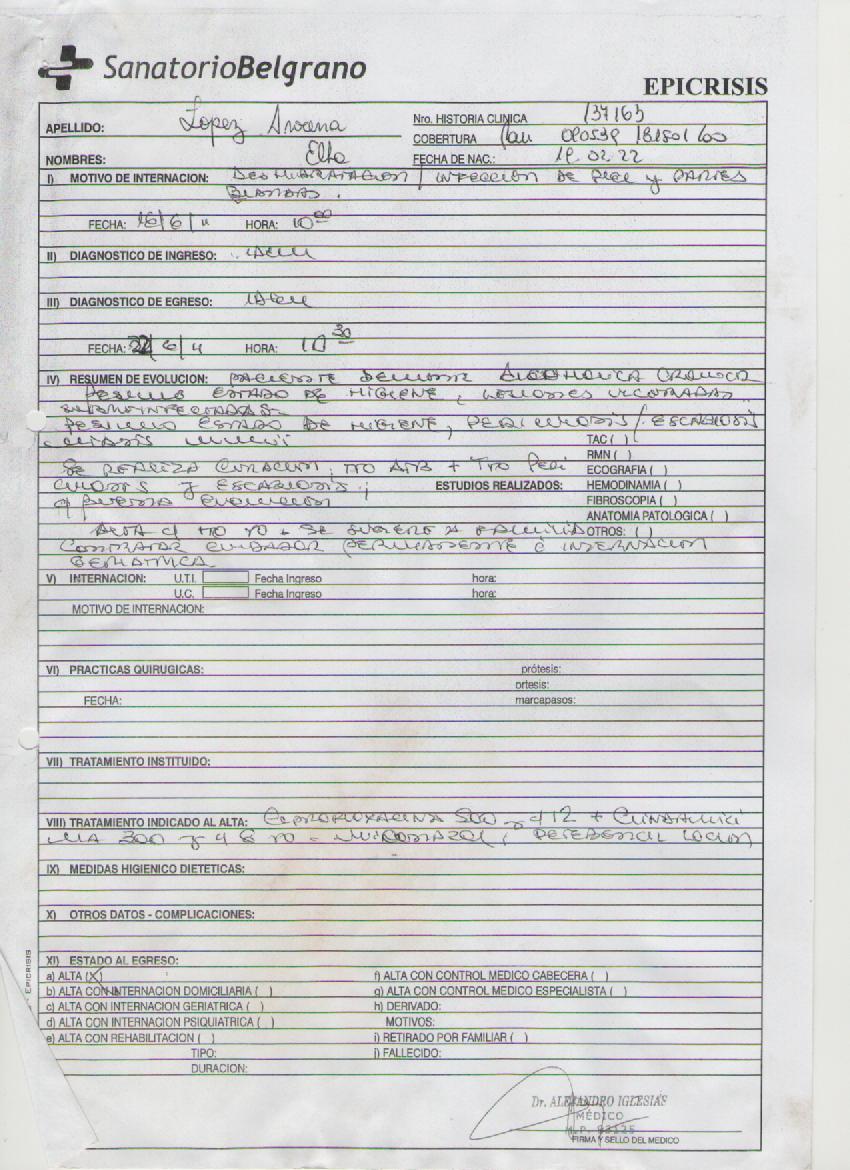 SanatorioBelgrano
EPICRISIS
APELLIDO: Lopez
Nro. HISTORIA CLINICA 137163
COBERTURA
NOMBRES: Elba
FECHA DE NAC.: 02.22
I) MOTIVO DE INTERNACION: DESHIDRATACION / INFECCION DE PIEL Y PARTES
BLANDAS.
FECHA: 16/6/11 HORA: 10 00
II) DIAGNOSTICO DE INGRESO: IDEM
III) DIAGNOSTICO DE EGRESO: IDEM
FECHA: 22/6/11 HORA: 10 30
IV) RESUMEN DE EVOLUCION: PACIENTE CRONICA
PESIMO ESTADO DE HIGIENE, LESIONES ULCERADAS
SOBREINFECTADAS.
PESIMO ESTADO DE HIGIENE, PEDICULOSIS / ESCABIOSIS
TAC ( )
RMN ( )
SE REALIZA CURACION, TTO ATB + TTO PEDI
ECOGRAFIA ( )
CULOSIS Y ESCABIOSIS;
ESTUDIOS REALIZADOS: HEMODINAMIA ( )
BUENA EVOLUCION
FIBROSCOPIA ( )
ANATOMIA PATOLOGICA ( )
ALTA C/ TTO VO. SE SUGIERE A FAMILIA
OTROS: ( )
CONTRATAR CUIDADOR PERMANENTE O INTERNACION
GERIATRICA
V) INTERNACION: U.T.I. Fecha Ingreso hora:
U.C. Fecha Ingreso hora:
MOTIVO DE INTERNACION:
VI) PRACTICAS QUIRUGICAS: prótesis:
ortesis:
FECHA: marcapasos:
VII) TRATAMIENTO INSTITUIDO:
VIII) TRATAMIENTO INDICADO AL ALTA: CIPROFLOXACINA 500 c/12 + CLINDAMICI
NA 300 c/6 VO. MICONAZOL, LOCION
IX) MEDIDAS HIGIENICO DIETETICAS:
X) OTROS DATOS - COMPLICACIONES:
XI) ESTADO AL EGRESO:
a) ALTA (X) f) ALTA CON CONTROL MEDICO CABECERA ( )
b) ALTA CON INTERNACION DOMICILIARIA ( ) g) ALTA CON CONTROL MEDICO ESPECIALISTA ( )
c) ALTA CON INTERNACION GERIATRICA ( ) h) DERIVADO:
d) ALTA CON INTERNACION PSIQUIATRICA ( ) MOTIVOS:
e) ALTA CON REHABILITACION ( ) i) RETIRADO POR FAMILIAR ( )
TIPO: j) FALLECIDO:
DURACION:
EPICRISIS
Dr. ALEJANDRO IGLESIAS
MÉDICO
M.P.
FIRMA Y SELLO DEL MEDICO